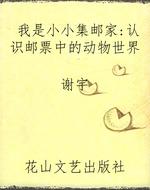 我是小小集邮家:认
识邮票中的动物世界
谢宇
花山文艺出版社